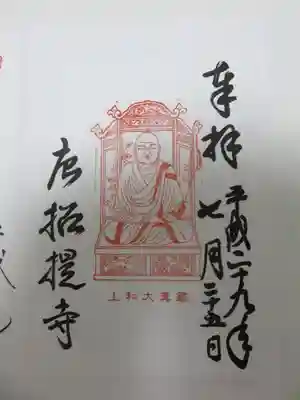 奉拝
平成二十九年
七月二十五日
鑑真大和上
唐招提寺